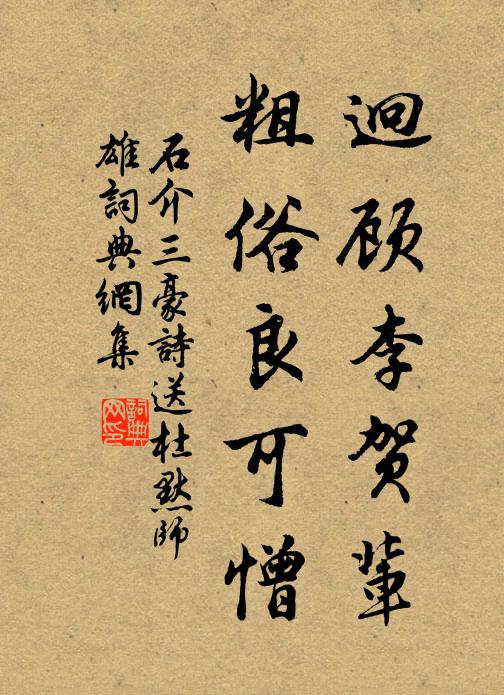 迴顾李贺輩
粗俗良可憎
石介三豪詩送杜默師
雄詞典網集
詞典
网印